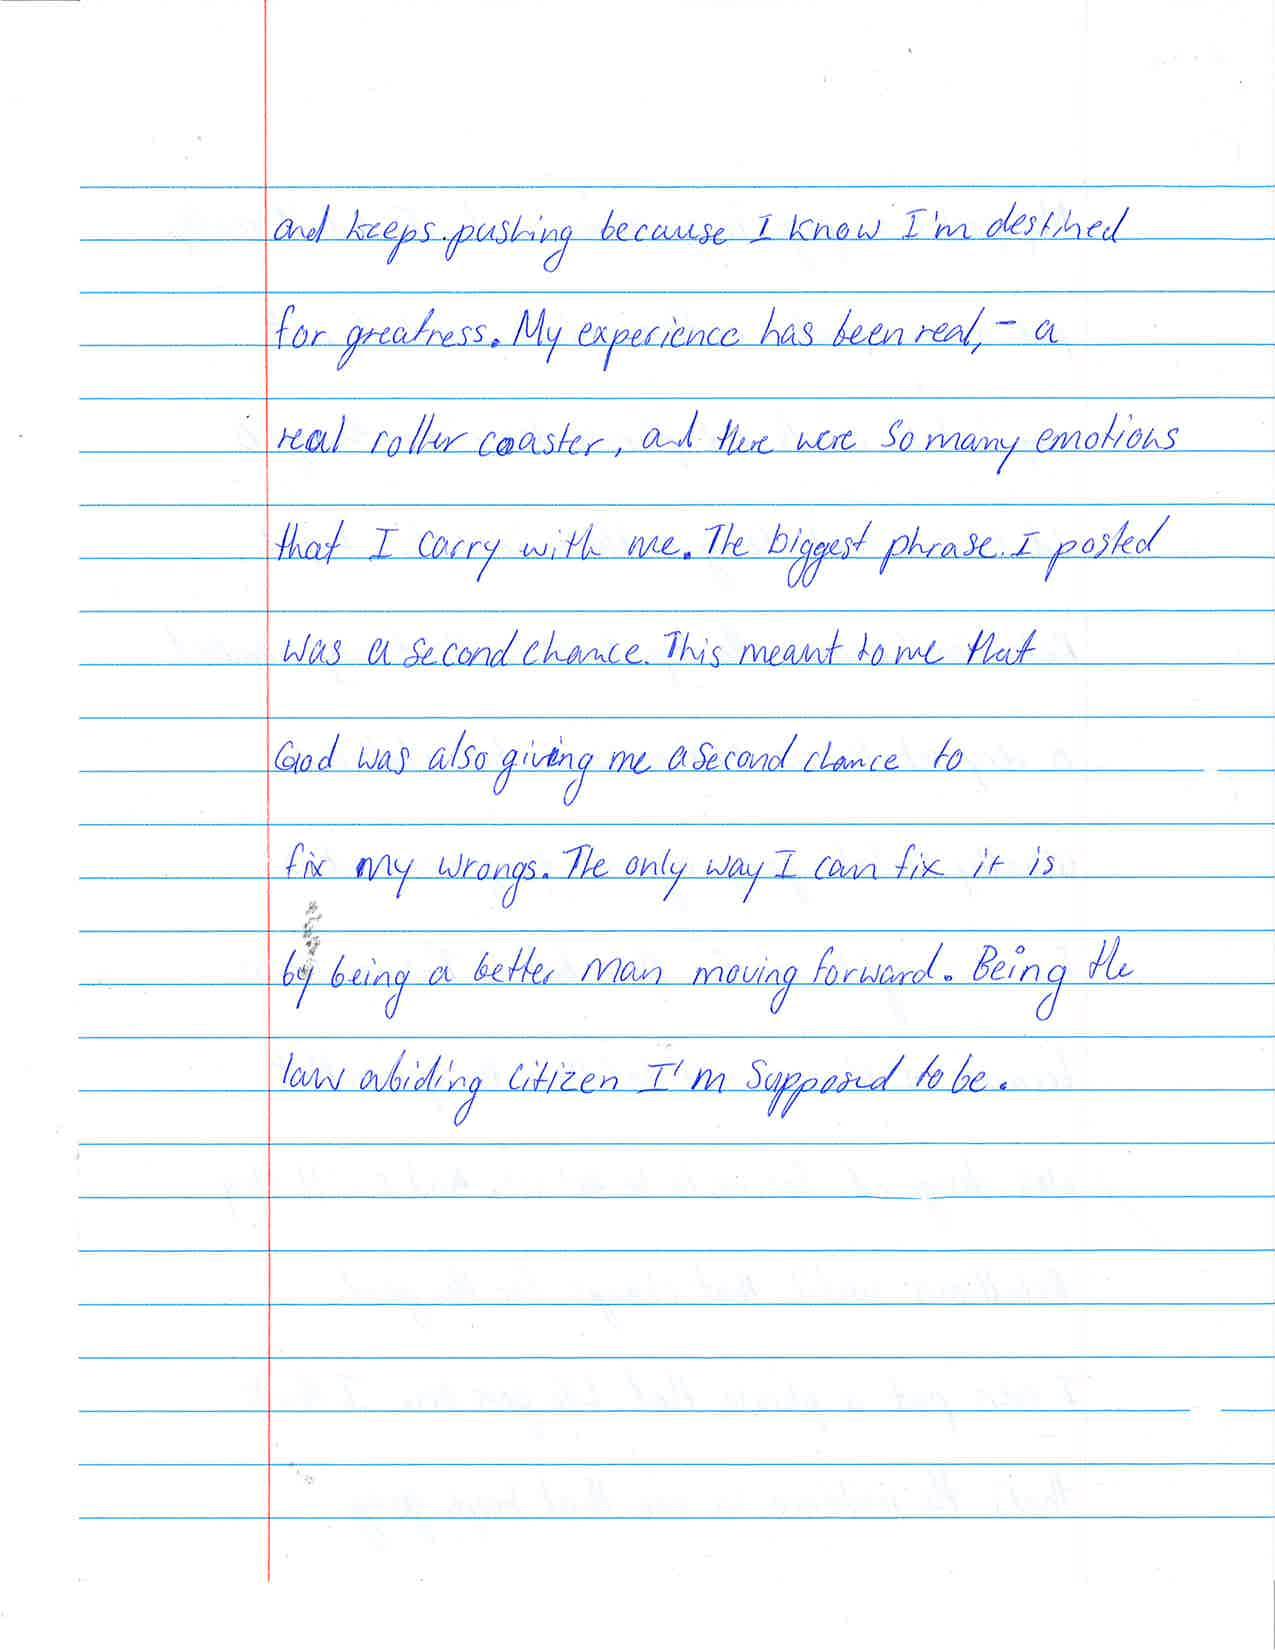 and keeps pushing because I know I'm destined
for greatness. My experience has been real, - a
real roller coaster, and there were so many emotions
that I carry with me. The biggest phrase I posted
was a second chance. This meant to me that
God was also giving me a second chance to
fix my wrongs. The only way I can fix it is
by being a better man moving forward. Being the
law abiding citizen I'm supposed to be.